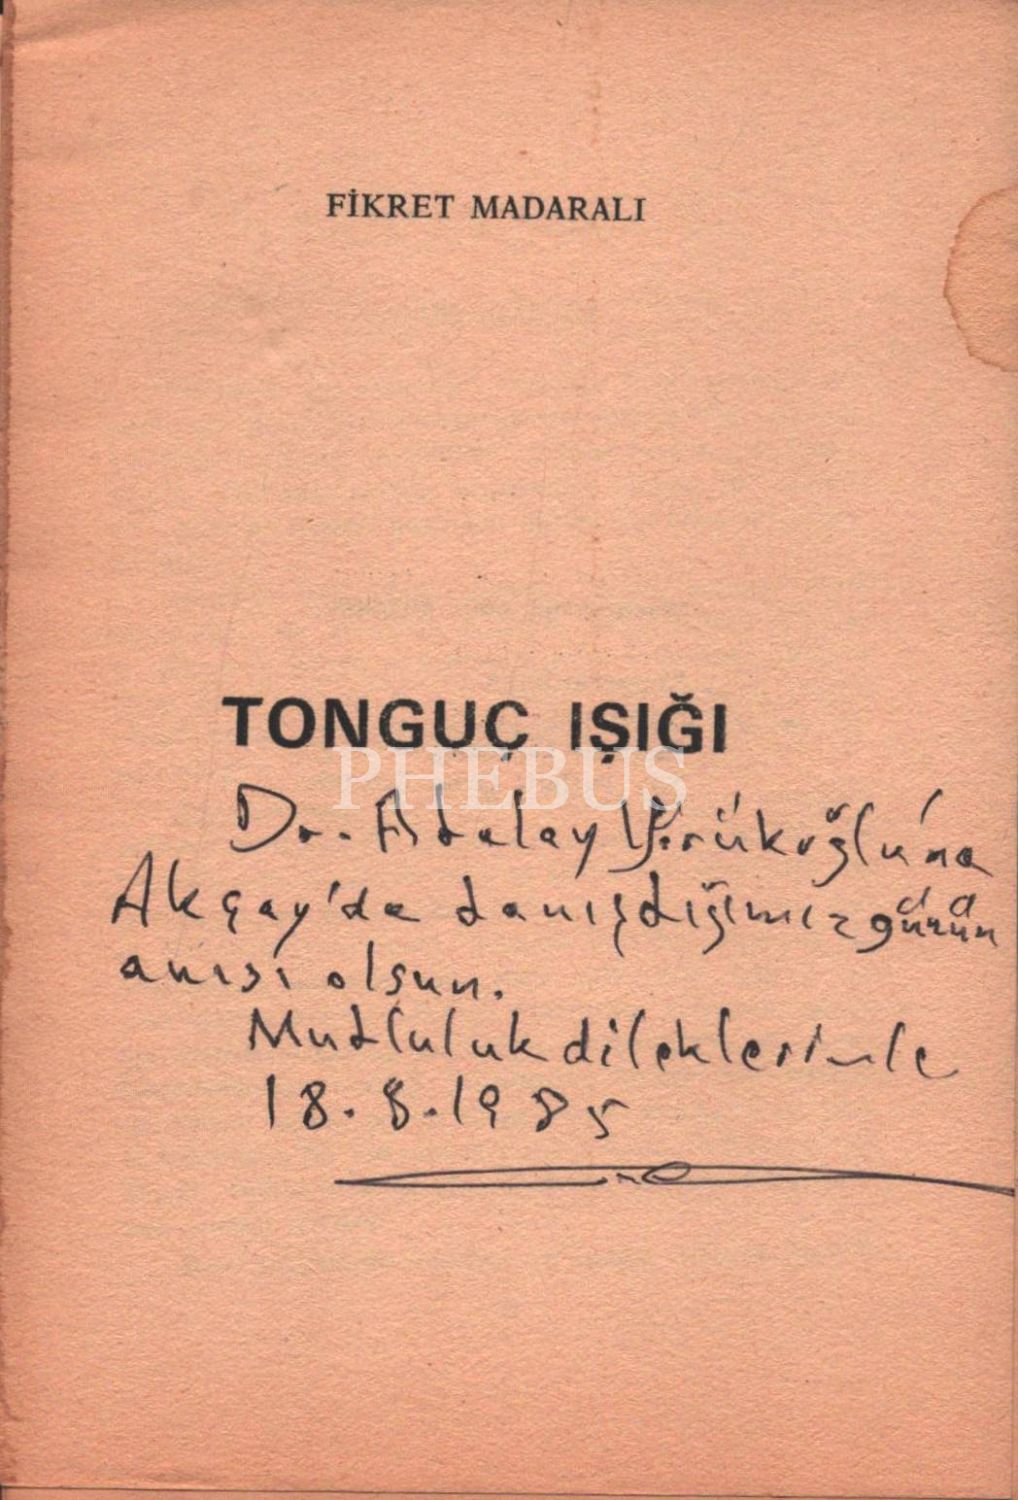 FİKRET MADARALI
TONGUÇ IŞIĞI
PHEBUS
Dr. Atalay Yörükoğlu'na
Akçay'da tanışdığımız günün
anısı olsun.
Mutluluk dileklerimle
18.8.1985